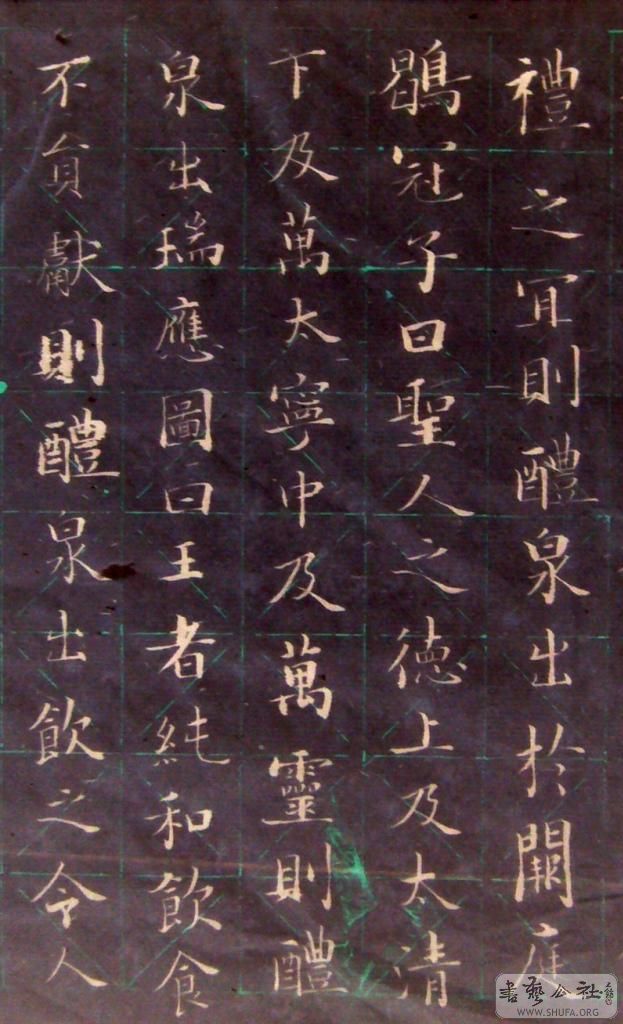 禮之宜則醴泉出於闕庭
鶡冠子曰聖人之德上及太清
下及萬太寧中及萬靈則醴
泉出瑞應圖曰王者純和飲食
不貢獻則醴泉出飲之令人
書藝公社
WWW.SHUFA.ORG